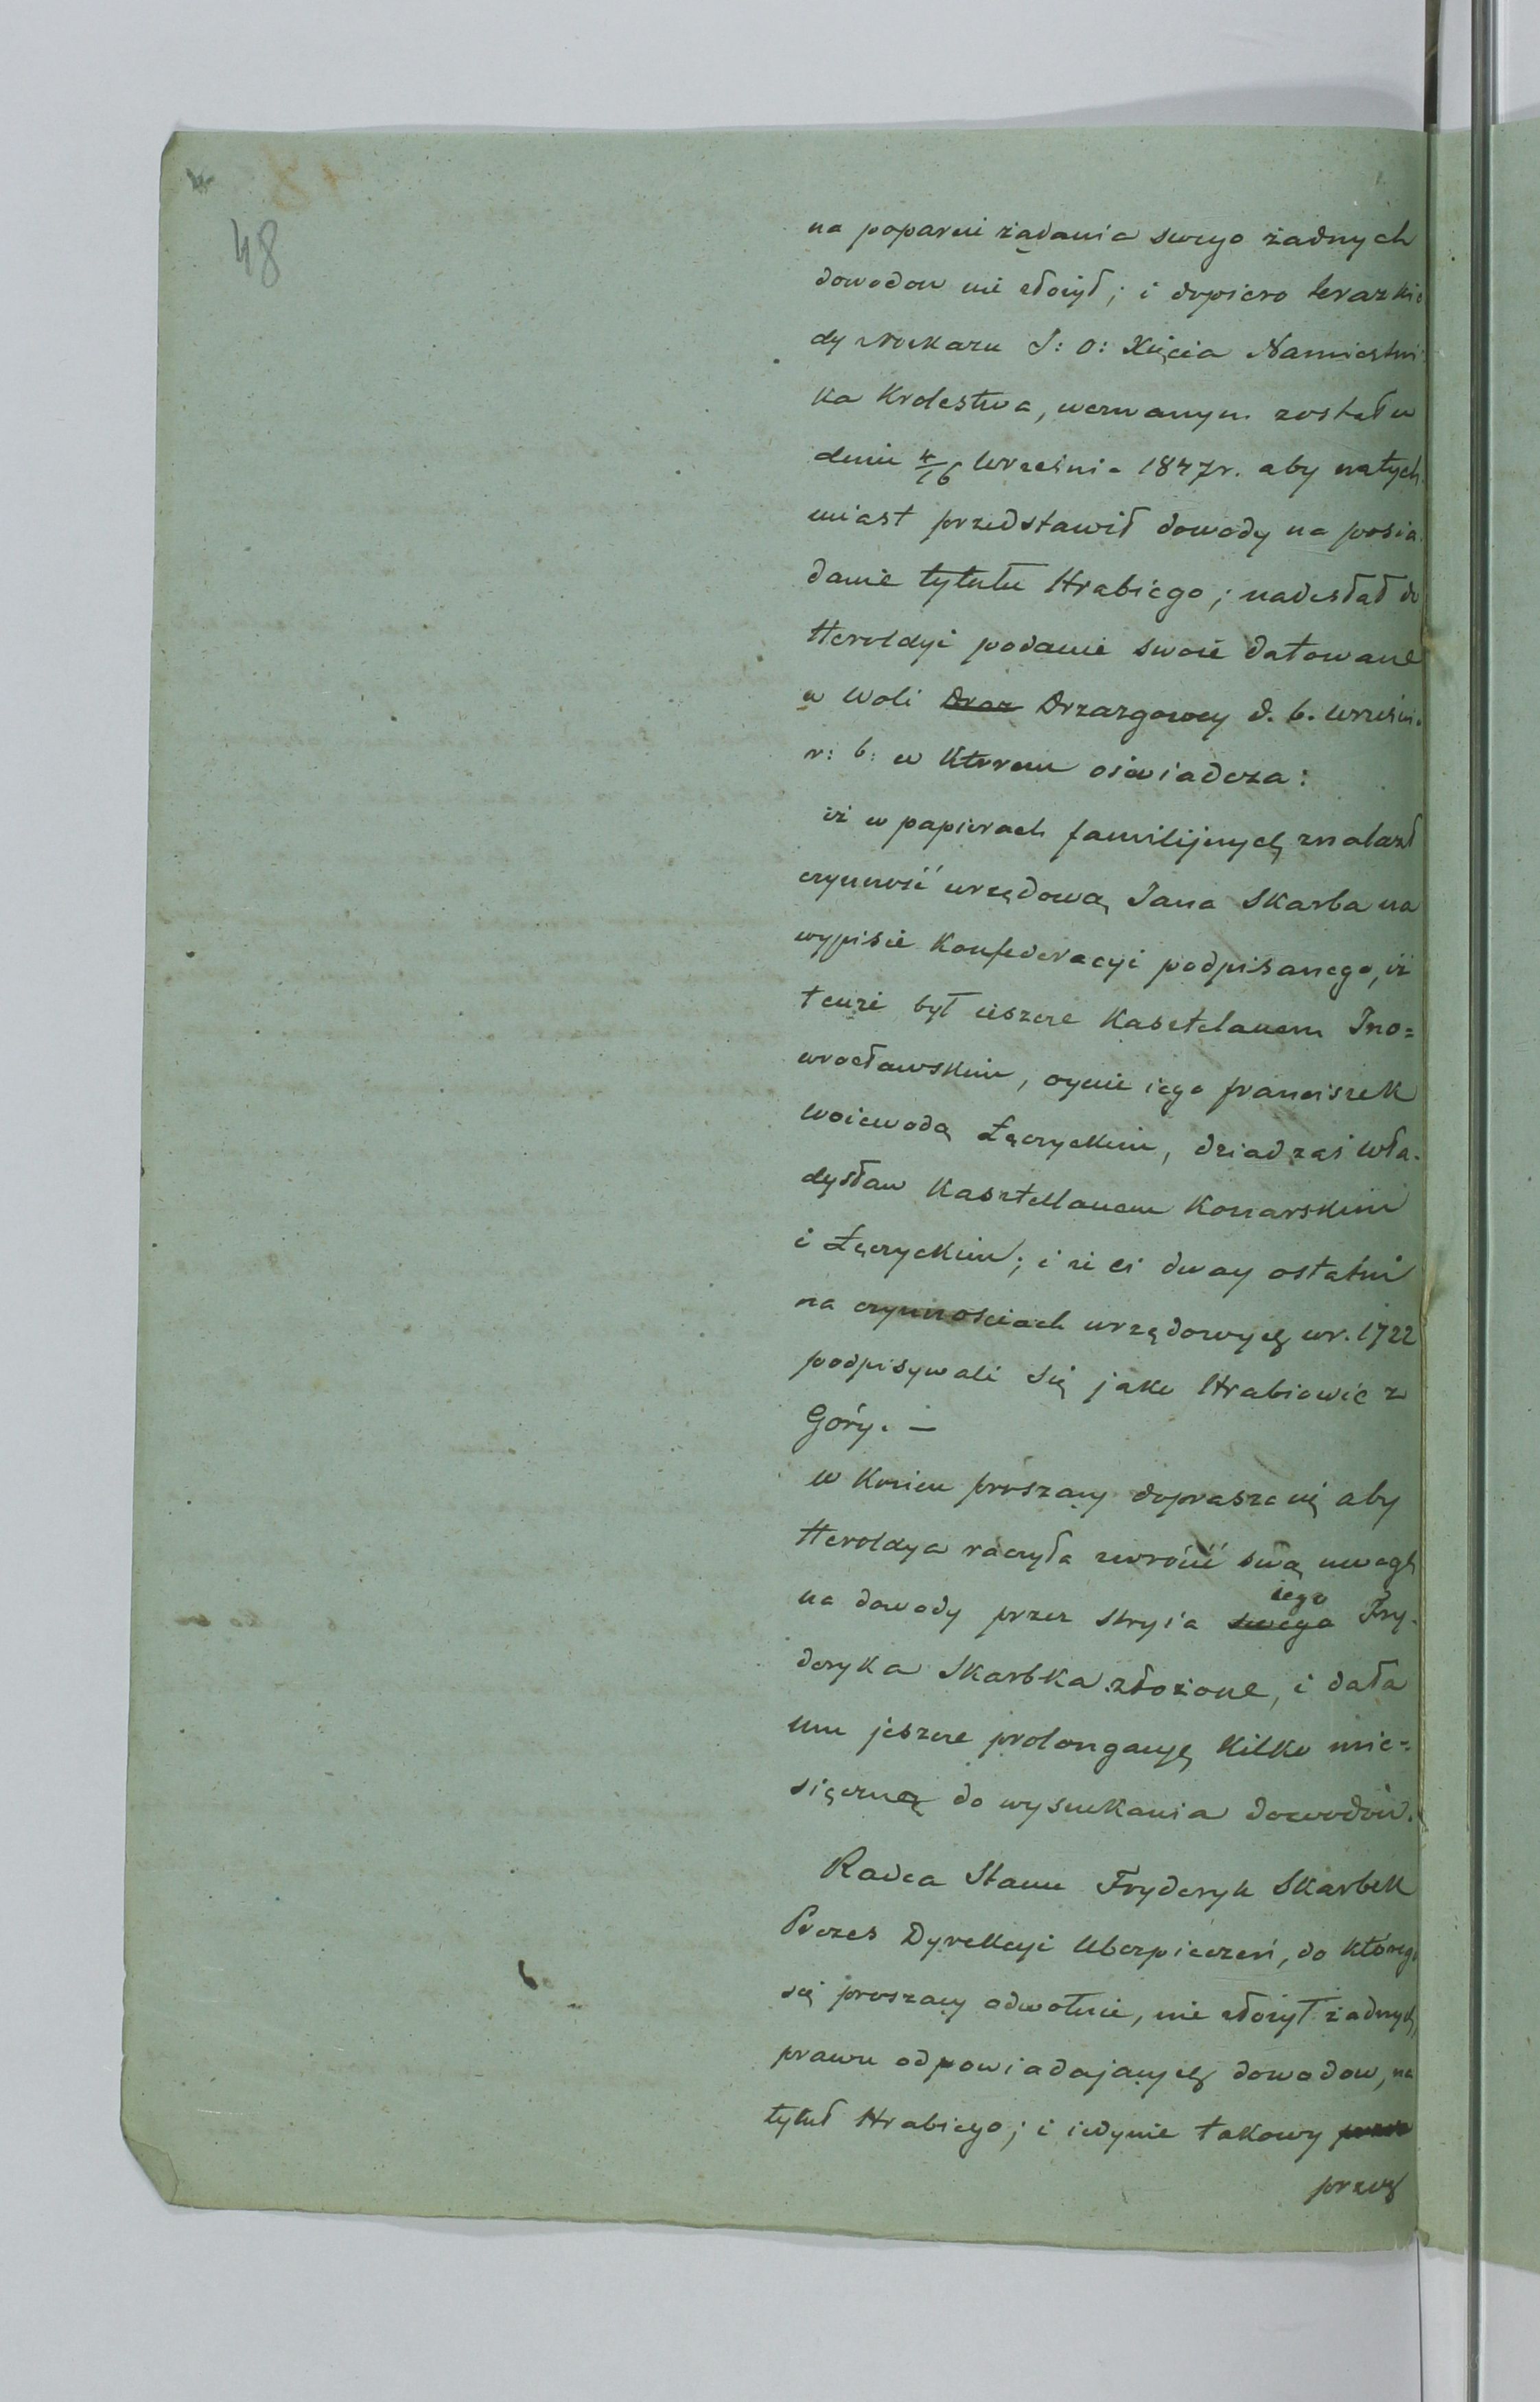 48
na poparcie żądania swego żadnych
dowodow nie złożył; i dopiero teraz kie
dy z rozkazu J: O: Xięcia Namiestni
ka Krolestwa, wezwanym został w
dniu 4/16 Września 1847 r. aby natych
miast przedstawił dowody na posia
danie tytułu Hrabiego; nadesłał do
Heroldyi podanie swoie datowane
w Woli Draz Drzazgowey d. 6. Wrześni
r: b: w ktorem oświadcza:
iż w papierach familijnych znalazł
czynność urzędową Jana Skarbka na
wypisie Konfederacyi podpisanego, iż
tenże był ieszcze Kasztelanem Ino=
wrocławskim, oyciec iego Franciszek
Woiewodą Łęczyckim, dziad zaś Wła-
dysław Kasztellanem Konarskim
i Łęczyckim; i że ci dway ostatni
na czynnościach urzędowych w r. 1722
podpisywali się jako Hrabiowie z
Góry. —
w końcu proszący doprasza się aby
Heroldya raczyła zwrócić swą uwagę
na dowody przez stryia swego iego Fry-
deryka Skarbka złożone, i dała
mu jeszcze prolongacyę kilko mie=
sięczną do wyszukania dowodów.
Radca Stanu Fryderyk Skarbek
Prezes Dyrekcyi Ubezpieczeń, do którego
się proszący odwołuie, nie złożył żadnych
prawu odpowiadających dowodow, na
tytuł Hrabiego; i iedynie takowy przez
przez